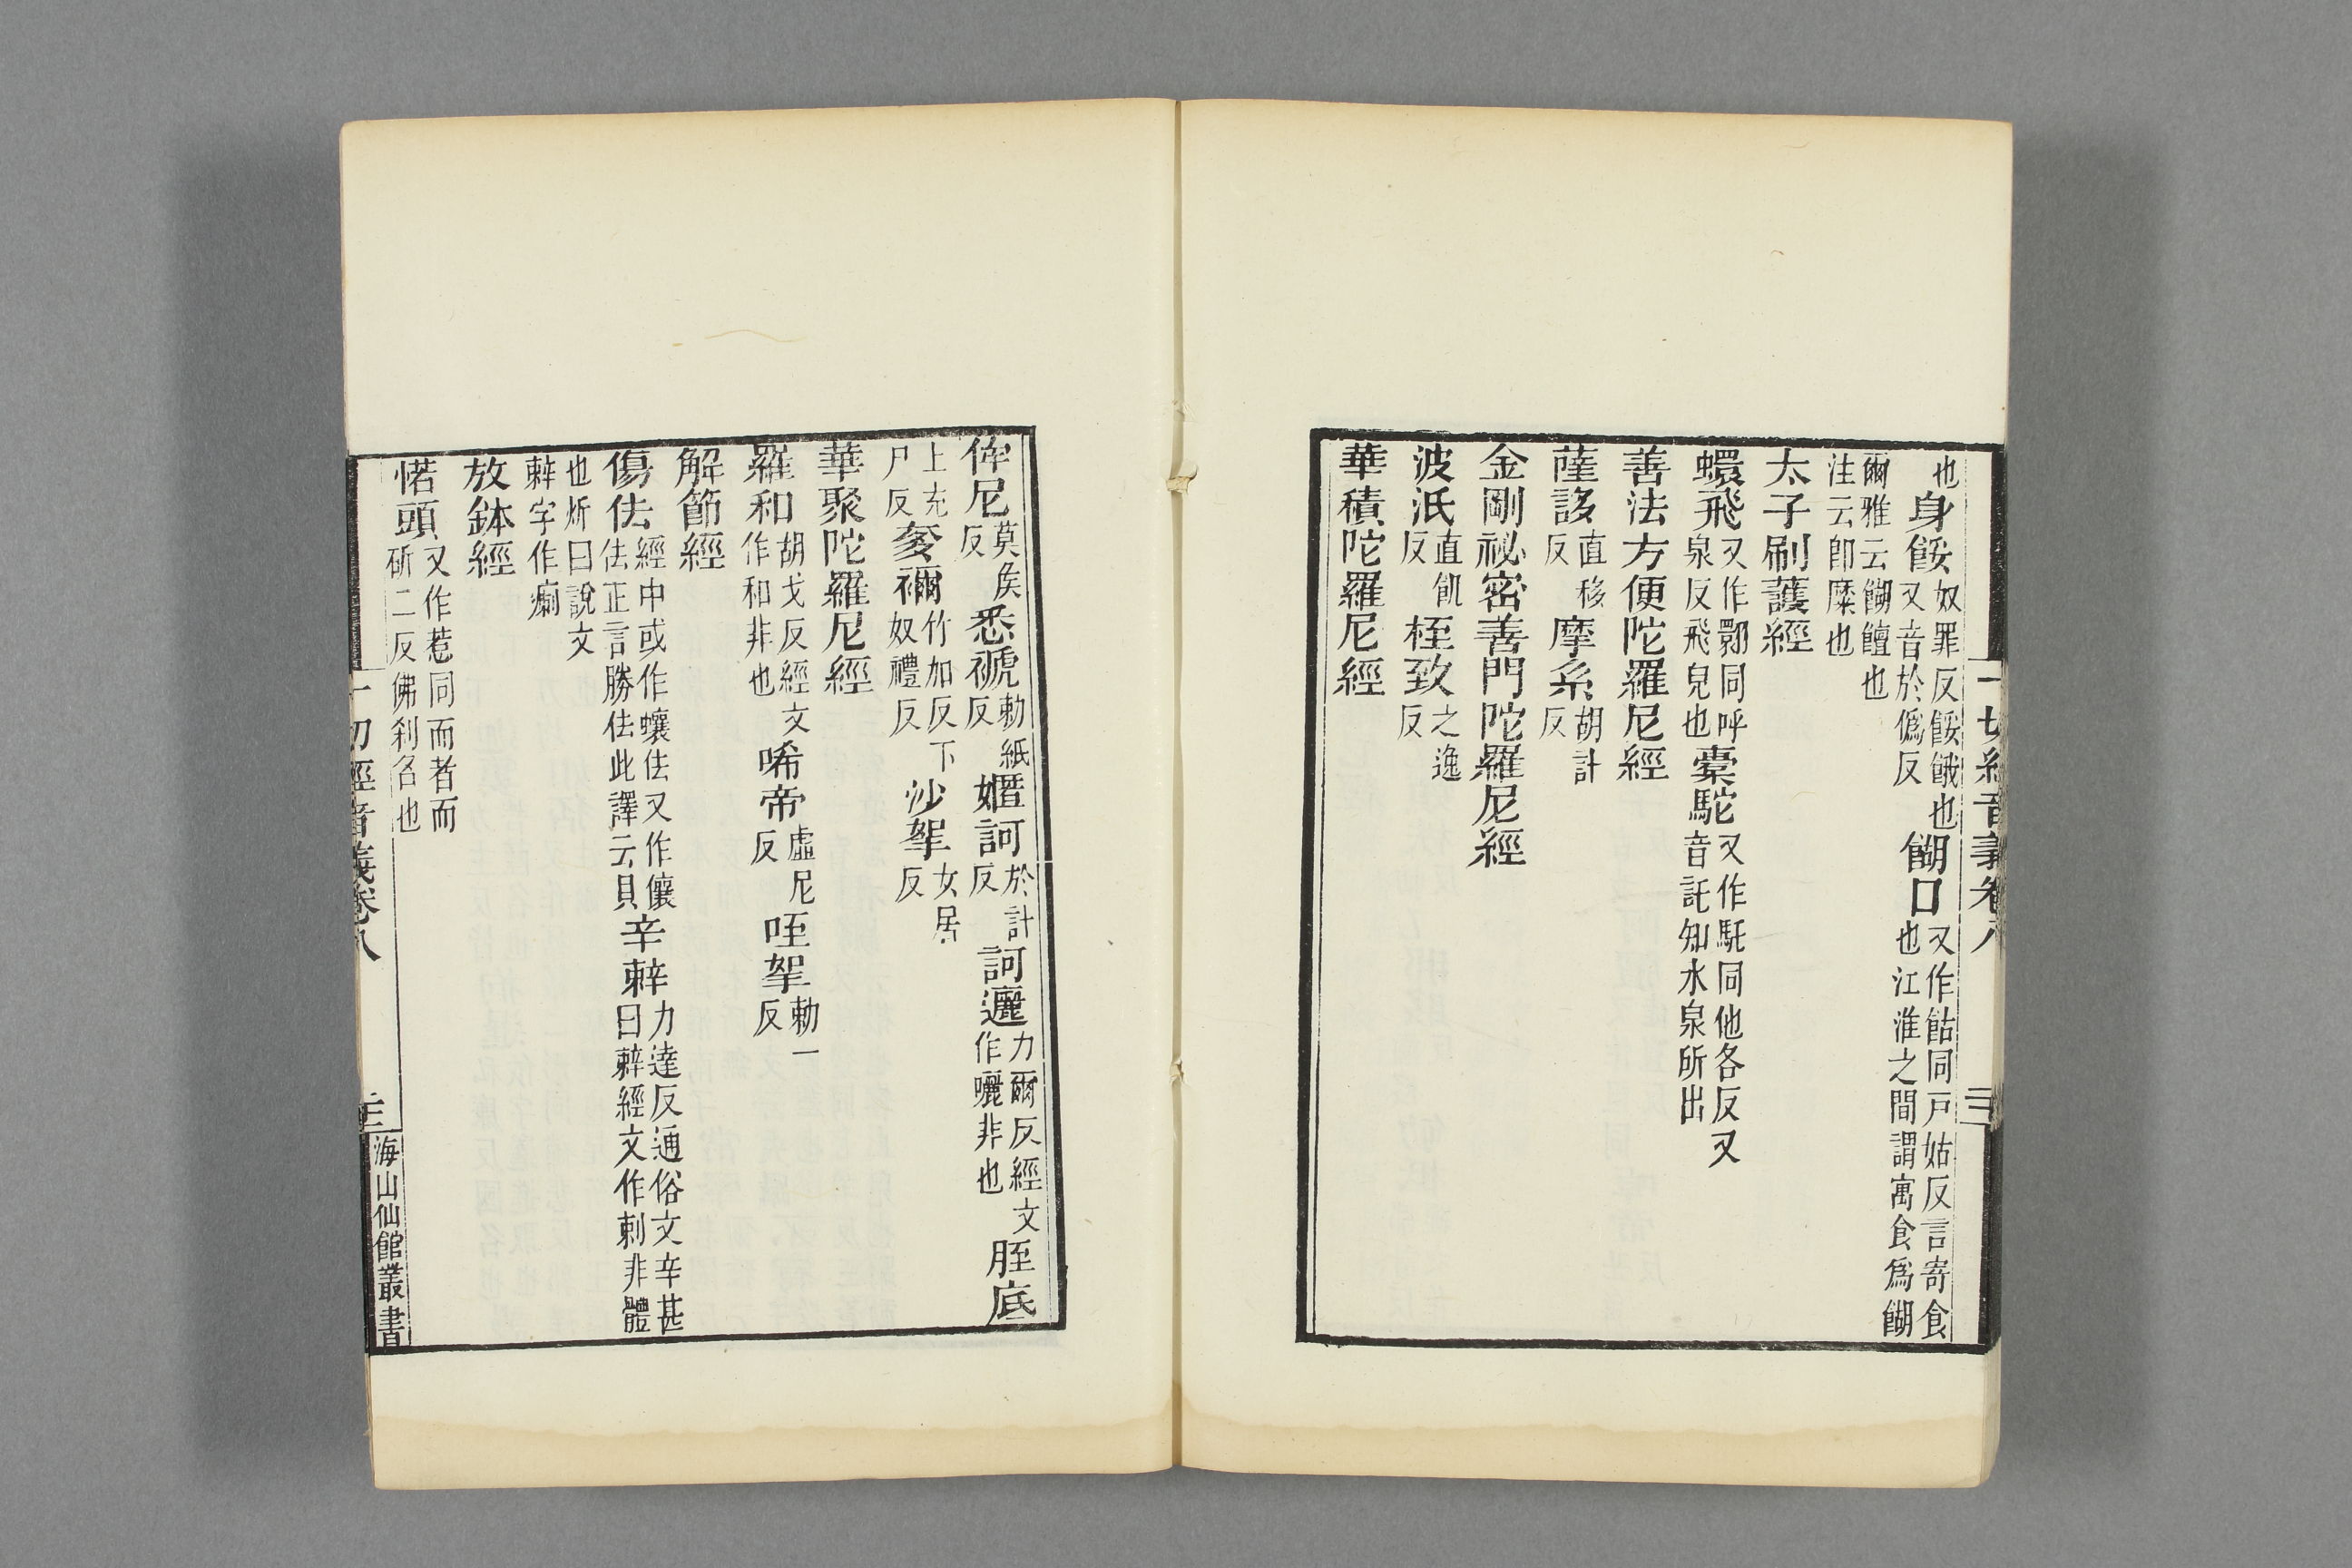 一切經音義卷八
也身餒奴罪反餒餓也又音於僞反餬口又作䬨同戸姑反言寄食也江淮之間謂寓食爲餬
爾雅云餬饘也注云卽糜也
太子刷護經
蠉飛又作翾同呼泉反飛皃也橐駝又作馲同他各反又音託知水泉所出
善法方便陀羅尼經
薩䛢直移反摩系胡計反
金剛祕密善門陀羅尼經
波泜直飢反桎致之逸反
華積陀羅尼經
侔尼莫矦反悉褫勅紙反嫕訶於計反訶邐力爾反經文作囇非也胵底
上充尸反奓禰竹加反下奴禮反沙挐女居反
華聚陀羅尼經
羅和胡戈反經文作和非也唏帝虛尼反咥挐勅一反
解節經
傷佉經中或作蠰佉又作儴佉正言勝佉此譯云貝辛辢力達反通俗文辛甚曰辢經文作剌非體
也炘曰說文辢字作瘌
放鉢經
惝頭又作惹同而者而斫二反佛刹名也
一切經音義卷八
海山仙館叢書